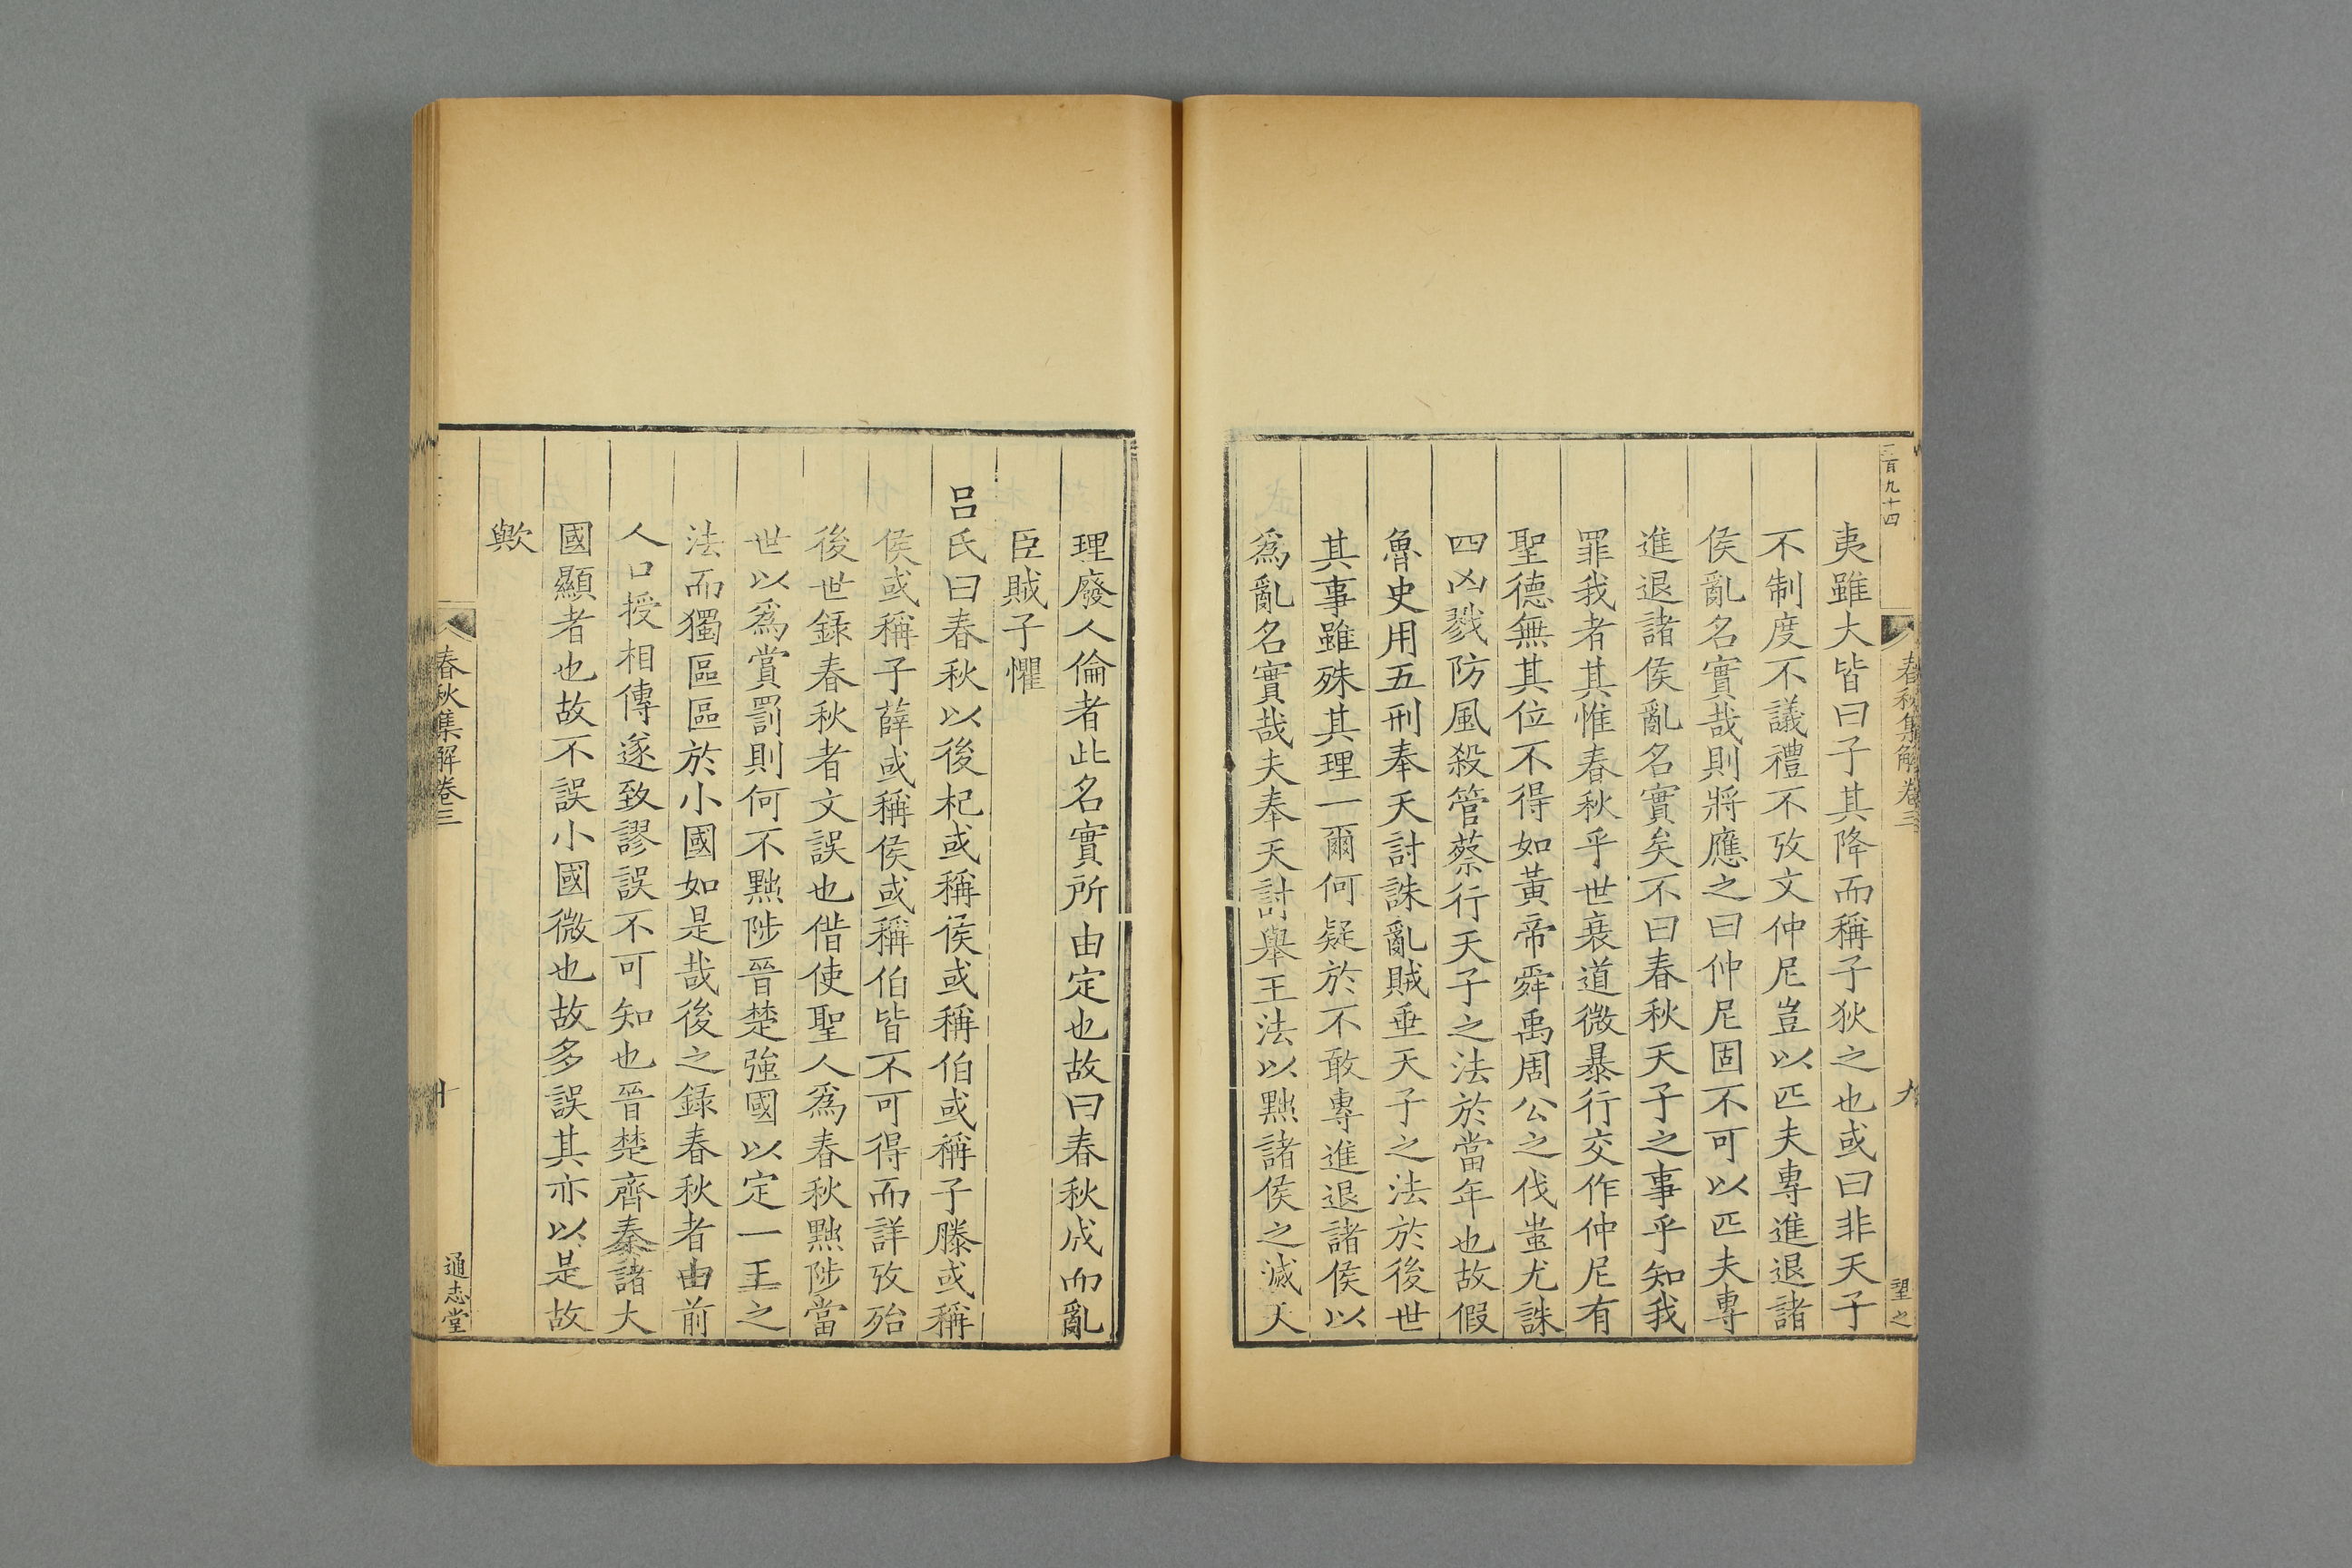 二百九十四
春秋集解卷三
九
望之
夷雖大皆曰子其降而稱子狄之也或曰非天子
不制度不議禮不攷文仲尼豈以匹夫專進退諸
侯亂名實哉則將應之曰仲尼固不可以匹夫專
進退諸侯亂名實矣不曰春秋天子之事乎知我
罪我者其惟春秋乎世衰道微暴行交作仲尼有
聖德無其位不得如黃帝舜禹周公之伐蚩尤誅
四凶戮防風殺管蔡行天子之法於當年也故假
魯史用五刑奉天討誅亂賊垂天子之法於後世
其事雖殊其理一爾何疑於不敢專進退諸侯以
為亂名實哉夫奉天討舉王法以黜諸侯之滅天
理廢人倫者此名實所由定也故曰春秋成而亂
臣賊子懼
呂氏曰春秋以後杞或稱侯或稱伯或稱子滕或稱
侯或稱子薛或稱侯或稱伯皆不可得而詳攷殆
後世録春秋者文誤也偕使聖人為春秋黜陟當
世以為賞罰則何不黜陟晉楚強國以定一王之
法而獨區區於小國如是哉後之録春秋者由前
人口授相傳遂致謬誤不可知也晉楚齊秦諸大
國顯者也故不誤小國微也故多誤其亦以是故
歟
春秋集解卷三
十
通志堂